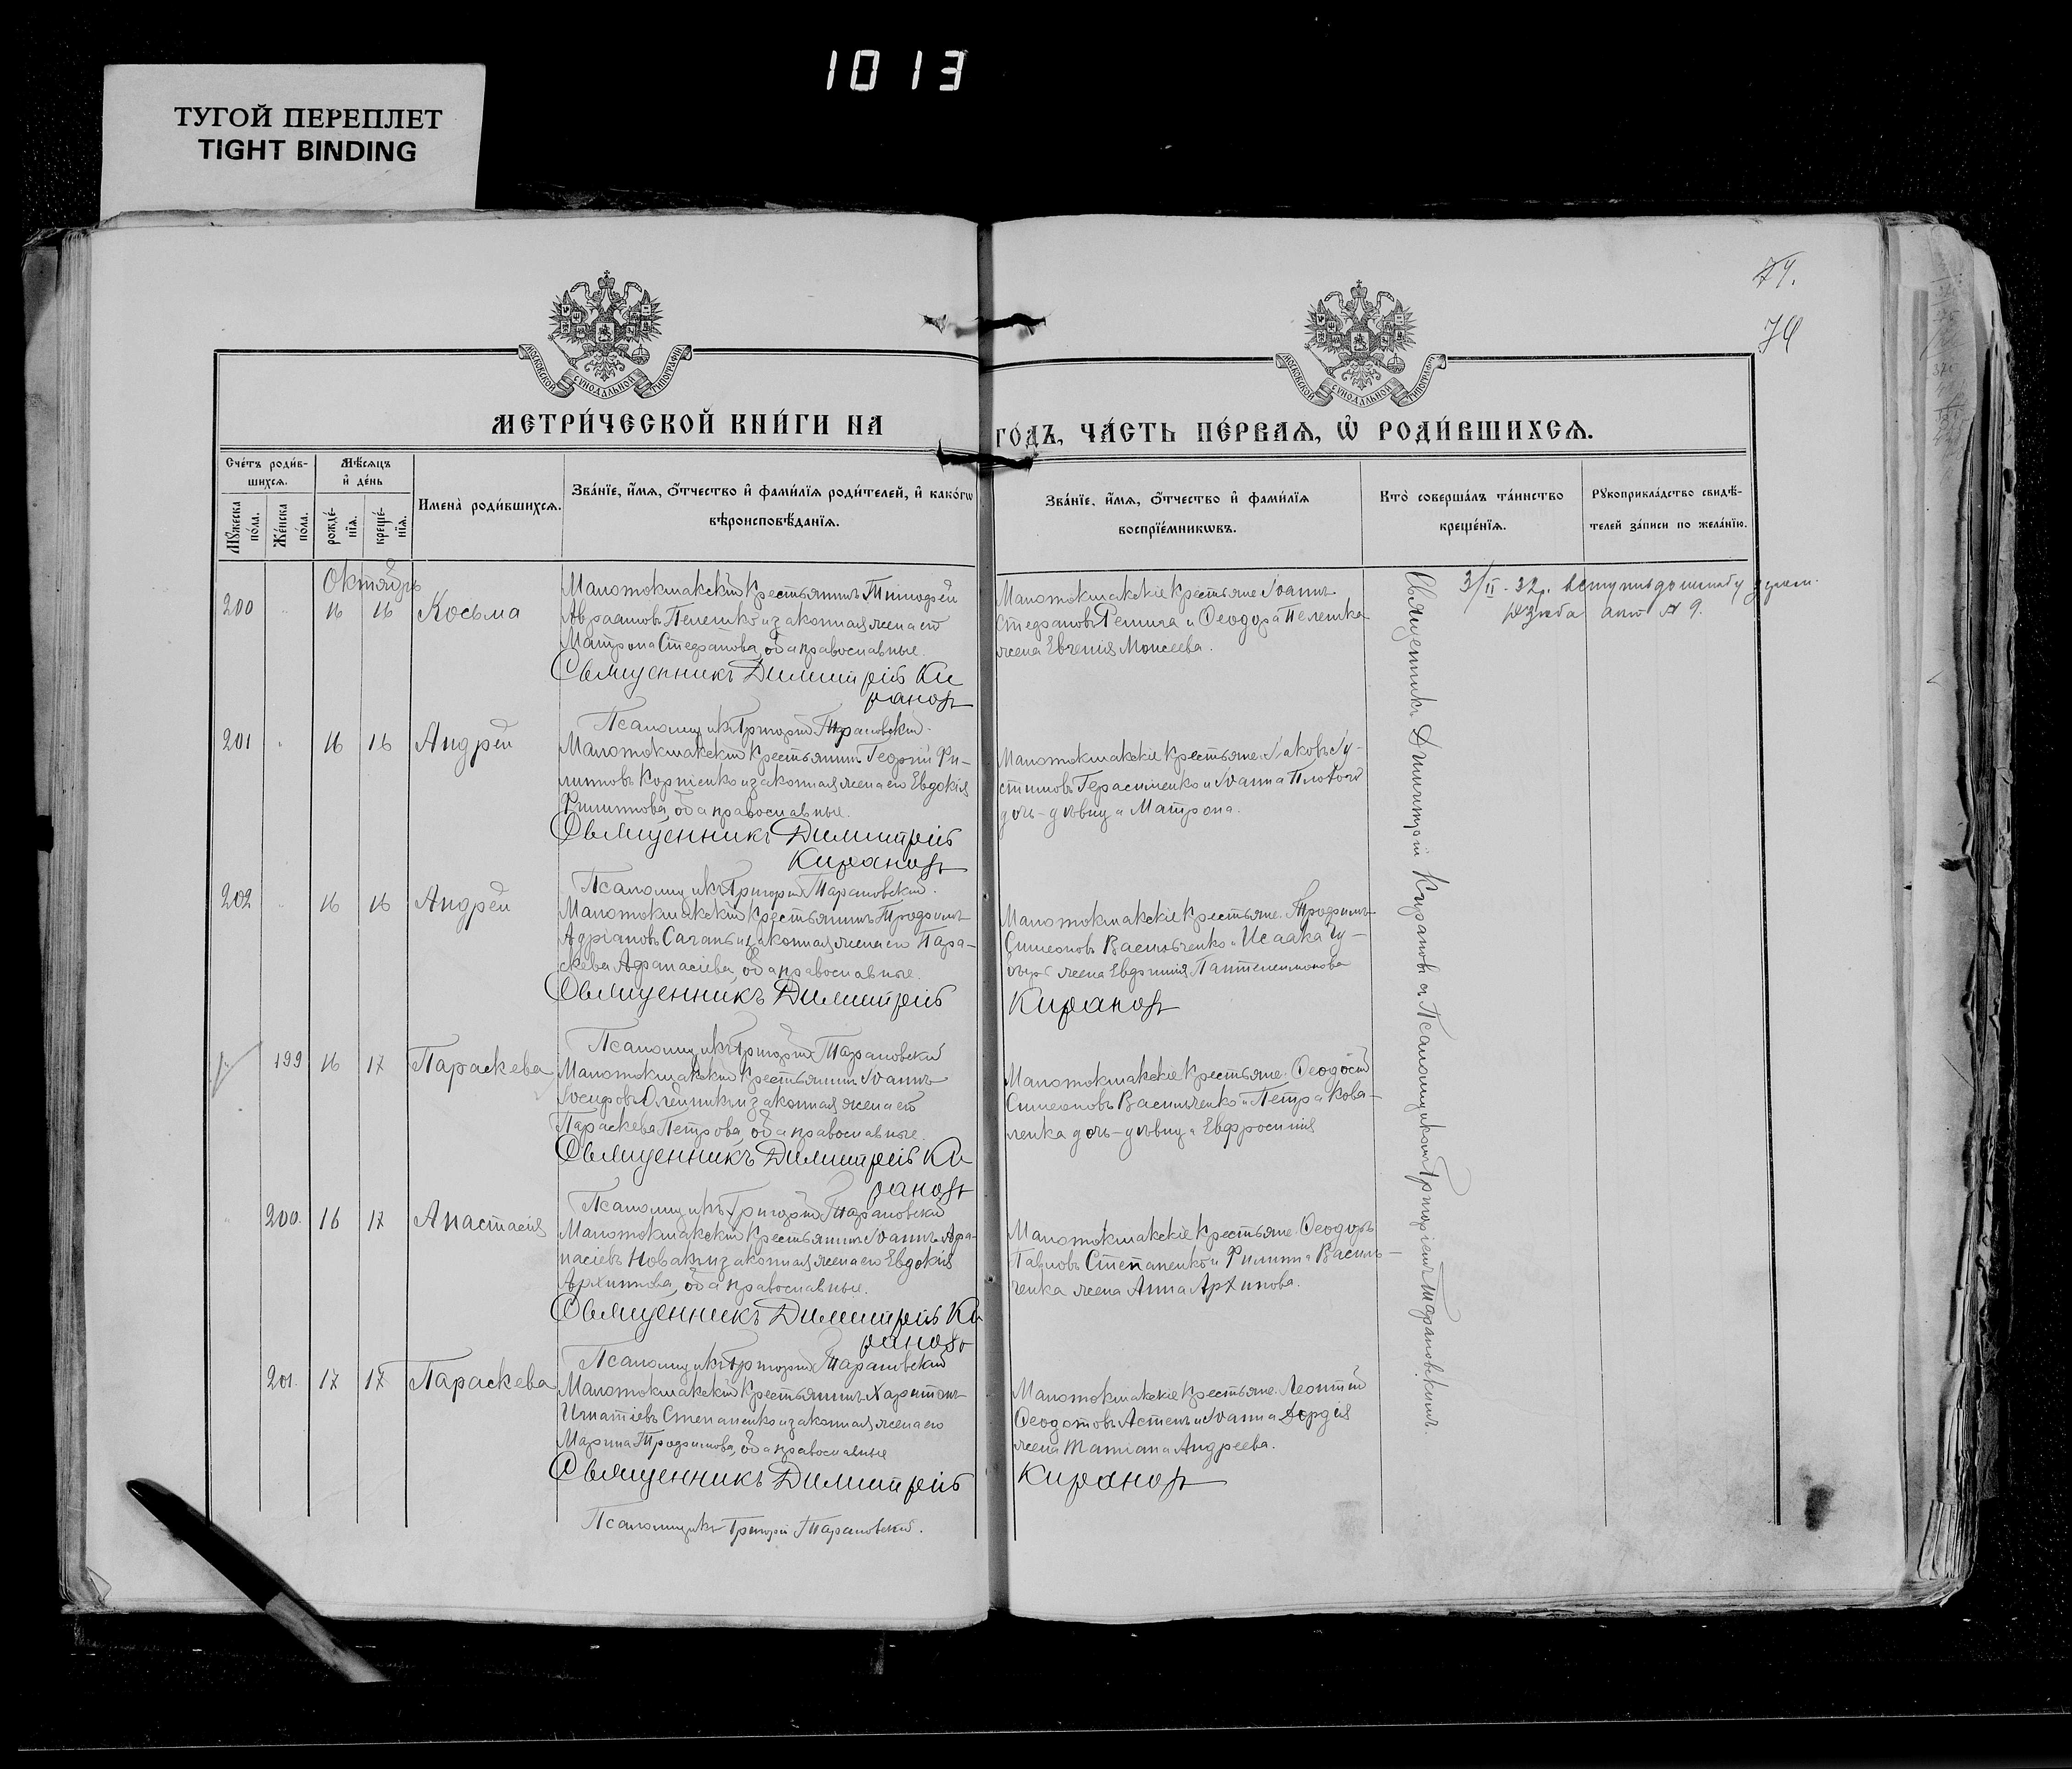 1013
ТУГОЙ ПЕРЕПЛЕТ
TIGHT BINDING
74.
МОСКОВСКОЙ СУНОДАЛЬНОЙ ТИПОГРАФІИ
МОСКОВСКОЙ СУНОДАЛЬНОЙ ТИПОГРАФІИ
МЕТРИ́ЧЕСКОЙ КНИ́ГИ НА
ГО́ДЪ, ЧА́СТЬ ПЕ́РВАѦ, Ѽ РОДИ́ВШИХСѦ.
Сче́тъ роди́в-
шихсѧ.
Мꙋ́жеска по́ла.
Же́нска по́ла.
Мѣ́сѧцъ
и҆ де́нь
рожде́-
нїѧ.
креще́-
нїѧ.
Имена̀ роди́вшихсѧ.
Зва́нїе, и҆́мѧ, ѻ҆́тчество и҆ фами́лїѧ роди́телей, и҆ како́гѡ
вѣроисповѣ́данїѧ.
Зва́нїе, и҆́мѧ, ѻ҆́тчество и҆ фами́лїѧ
воспрїе́мникѡвъ.
Кто̀ соверша́лъ та́инство
креще́нїѧ.
Рꙋкоприкла́дство свидѣ́-
телей за́писи по жела́нїю.
Октябрь
200 " 16 16 Косьма
Малотокмакскій крестьянинъ Тимофей
Авраамовъ Пелешко и законная жена его
Матрона Стефанова, оба православные.
Священникъ Димитрій Ки
рановъ
Псаломщикъ Григорій Тарановскій.
Малотокмакскіе крестьяне Іоаннъ
Стефановъ Репича и Ѳеодора Пелешка
жена Евгенія Моисеева.
201 " 16 16 Андрей
Малотокмакскій крестьянинъ Георгій Фи-
липповъ Корніенко и законная жена его Евдокія
Филиппова, оба православные.
Священникъ Димитрій
Кирановъ
Псаломщикъ Григорій Тарановскій.
Малотокмакскіе крестьяне Іаковъ Іу-
стиновъ Герасименко и Іоанна Плохого
дочь-дѣвица Матрона.
202 " 16 16 Андрей
Малотокмакскій крестьянинъ Трофимъ
Адріановъ Сачанъ и законная жена его Пара-
скева Афанасіева, оба православные.
Священникъ Димитрій
Псаломщикъ Григорій Тарановскій
Малотокмакскіе крестьяне: Трофимъ
Симеоновъ Васильченко и Исаака
жена Пантелеимонова
Кирановъ
199 16 17 Параскева
Малотокмакскій крестьянинъ Іоаннъ
Іосифовъ Олейникъ и законная жена его
Параскева Петрова, оба православные.
Священникъ Димитрій Ки
рановъ
Псаломщикъ Григорій Тарановскій
Малотокмакскіе крестьяне: Ѳеодосій
Симеоновъ Васильченко и Петра Кова-
ленка дочь-дѣвица Евфросинія
" 200. 16 17 Анастасія
Малотокмакскій крестьянинъ Іоаннъ Афа-
насіевъ Новакъ и законная жена его Евдокія
Архиппова, оба православные.
Священникъ Димитрій Ки
рановъ
Псаломщикъ Григорій Тарановскій
Малотокмакскіе крестьяне: Ѳеодоръ
Павловъ Степаненко и Филиппа Василь-
ченка жена Анна Архипова.
201. 17 17 Параскева
Малотокмакскій крестьянинъ Харитонъ
Игнатіевъ Степаненко и законная жена его
Марина Трофимова, оба православные
Священникъ Димитрій
Псаломщикъ Григорій Тарановскій.
Малотокмакскіе крестьяне: Леонтій
Ѳеодотовъ Астенъ и Іоанна
жена Татіана Андреева.
Кирановъ
Священникъ Димитрій Кирановъ съ Псаломщикомъ Григоріемъ Тарановскимъ.
3/II - 32 р.